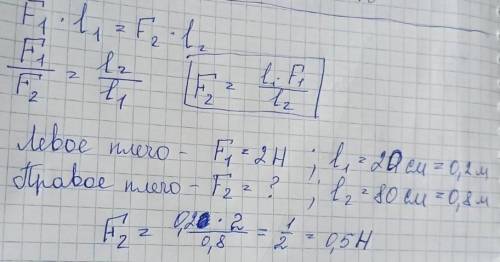 F₁ · l₁ = F₂ · l₂
F₁/F₂ = l₂/l₁ F₂ = l₁·F₁/l₂
Левое плечо - F₁ = 2Н ; l₁ = 20 см = 0,2 м
Правое плечо - F₂ = ? ; l₂ = 80 см = 0,8 м
F₂ = 0,20 · 2/0,8 = 1/2 = 0,5Н